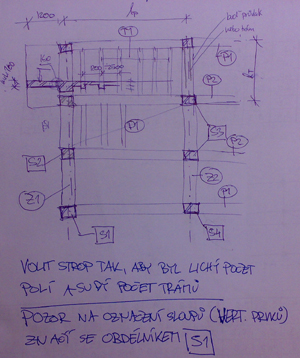 1200
P1
P1
P2
P1
P2
S3
S2
Z1
Z2
P1
S1
S4
VOLIT STROP TAK, ABY BYL LICHÝ POČET
POLÍ A SUDÝ POČET TRÁMŮ
POZOR NA OZNAČENÍ SLOUPŮ (VERT. PRVKŮ)
ZNAČÍ SE OBDÉLNÍKEM S1